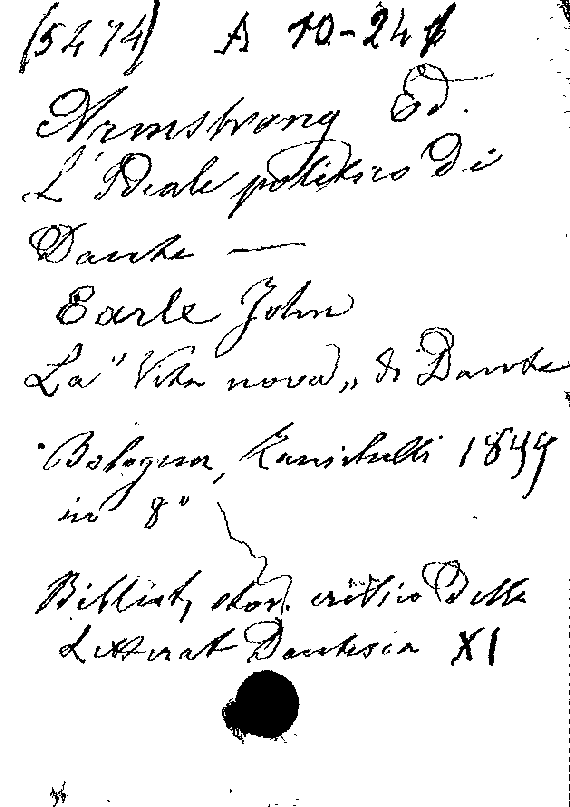 (5274) A 10-24
Armstrong Ed.
L'Ideale politico di
Dante —
Earle John
La "Vita nova" di Dante
Bologna, Zanichelli 1899
in 8°
Bibliot. stor. critico della
Letterat Dantesca XI